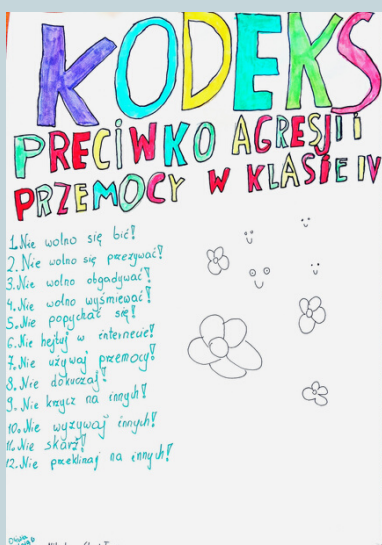 KODEKS
PRECIWKO AGRESJI I
PRZEMOCY W KLASIE IV
1. Nie wolno się bić!
2. Nie wolno się przezywać!
3. Nie wolno obgadywać!
4. Nie wolno wyśmiewać!
5. Nie popychać się!
6. Nie hejtuj w internecie!
7. Nie używaj przemocy!
8. Nie dokuczaj!
9. Nie krzycz na innych!
10. Nie wyzywaj innych!
11. Nie skarż!
12. Nie przeklinaj na innych!